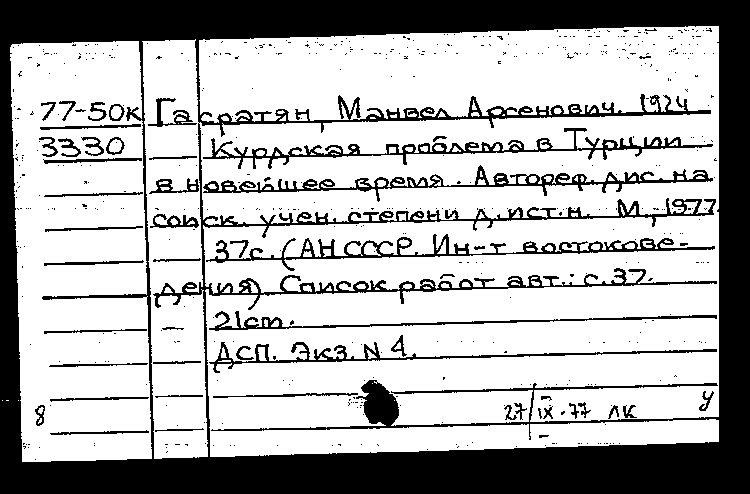 77-50к Гасратян, Манвел Арсенович. 1924
3330 Курдская проблема в Турции
в новейшее время. Автореф. дис. на
соиск. учен. степени д.ист.н. М., 1977
37с. (АН СССР. Ин-т востокове-
дения). Список работ авт.: с.37.
21cm.
ДСП. Экз. N 4.
8 27/IX-77 ЛК У